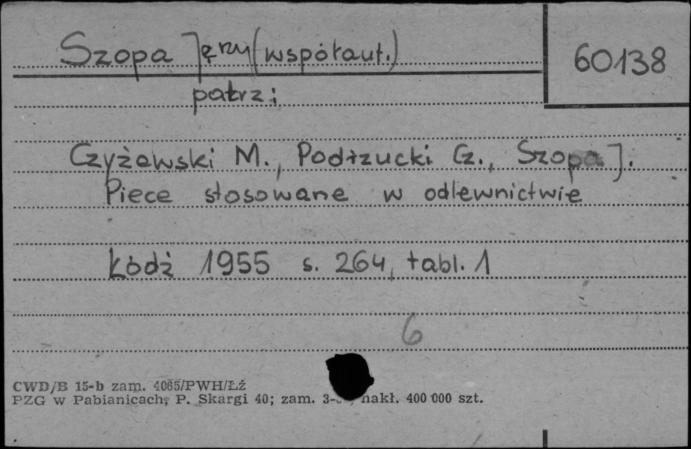 Szopa Jerzy (współaut.)
60138
patrz:
Czyżewski M., Podrzucki Cz., Szopa J.
Piece stosowane w odlewnictwie
Łódź 1955 s. 264, tabl. 1
6
CWD/B 15-b zam. 4065/PWH/Łź
PZG w Pabianicach, P. Skargi 40; zam. nakł. 400 000 szt.